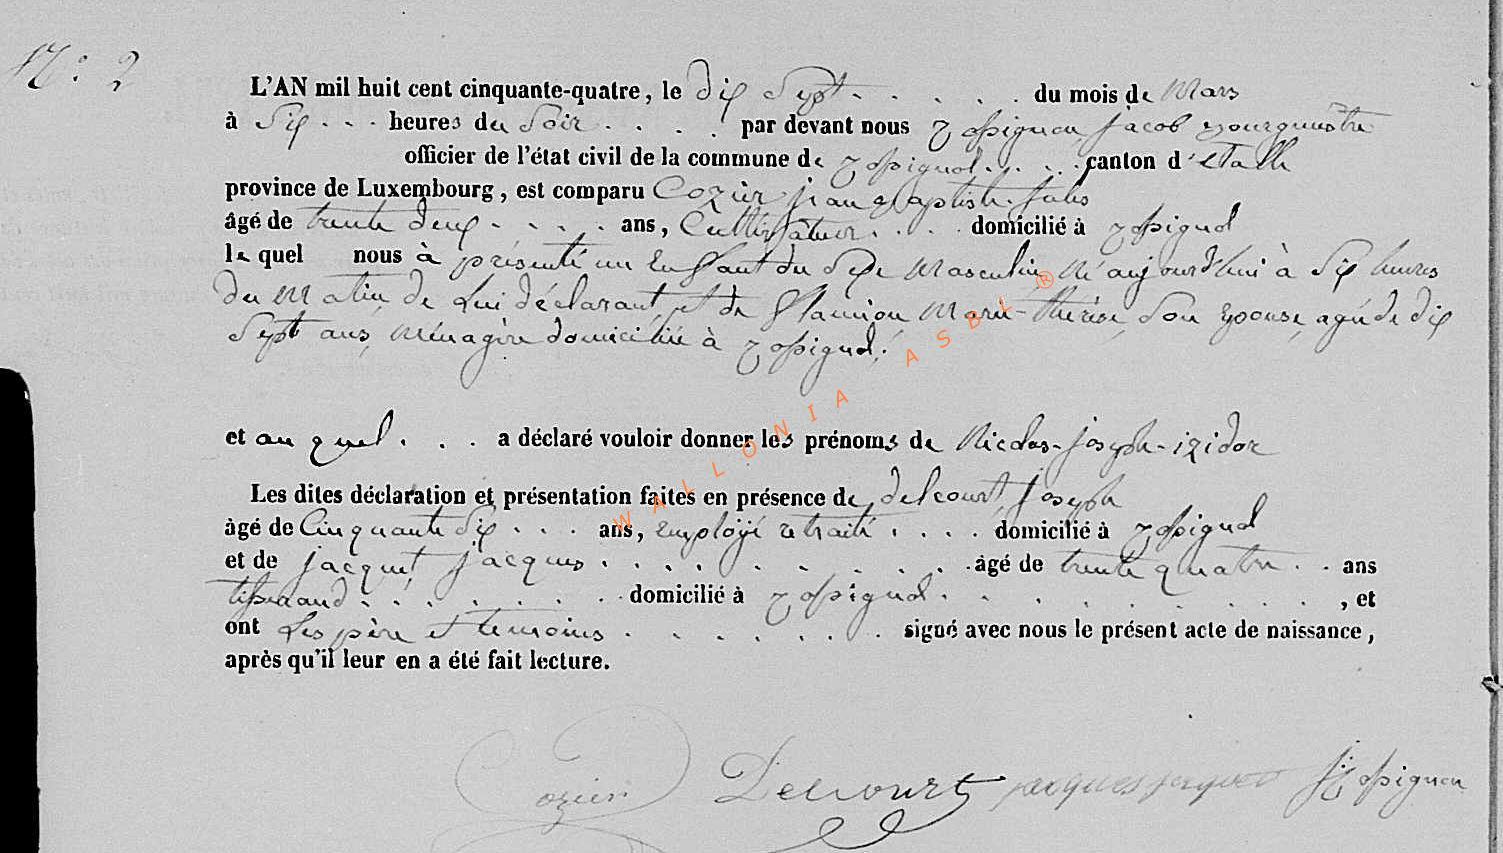 N.° 2
L'AN mil huit cent cinquante-quatre, le dix sept . . . . . du mois de Mars
à Six . . . heures du Soir . . . . par devant nous Rossignon, jacob Bourguestre
officier de l'état civil de la commune de Rossignol . . . . canton d'Etalle
province de Luxembourg, est comparu Cozier jean Baptiste
âgé de trente deux . . . . ans, Cultivateur . . . . domicilié à Rossignol
lequel nous à présenté un Enfant du Sexe Masculin Né aujourd'hui à Six heures
du Matin de Lui déclarant, et de Marie-thérèse, Son Epouse, agée de dix
Sept ans, Ménagère domiciliée à Rossignol.
et au quel . . . a déclaré vouloir donner les prénoms de Nicolas-joseph-izidor
Les dites déclaration et présentation faites en présence de delcourt Joseph
âgé de Cinquante Six . . . ans, employé retraité . . . . domicilié à Rossignol
et de jacquet jacques . . . . . . . . . âgé de trente quatre . . ans
tisserand . . . . . . . domicilié à Rossignol . . . . . . . . . , et
ont Les père et temoins . . . . . . . signé avec nous le présent acte de naissance,
après qu'il leur en a été fait lecture.
Cozier Delcourt jacques jacquet J Rossignon
WALLONIA ASBL ®